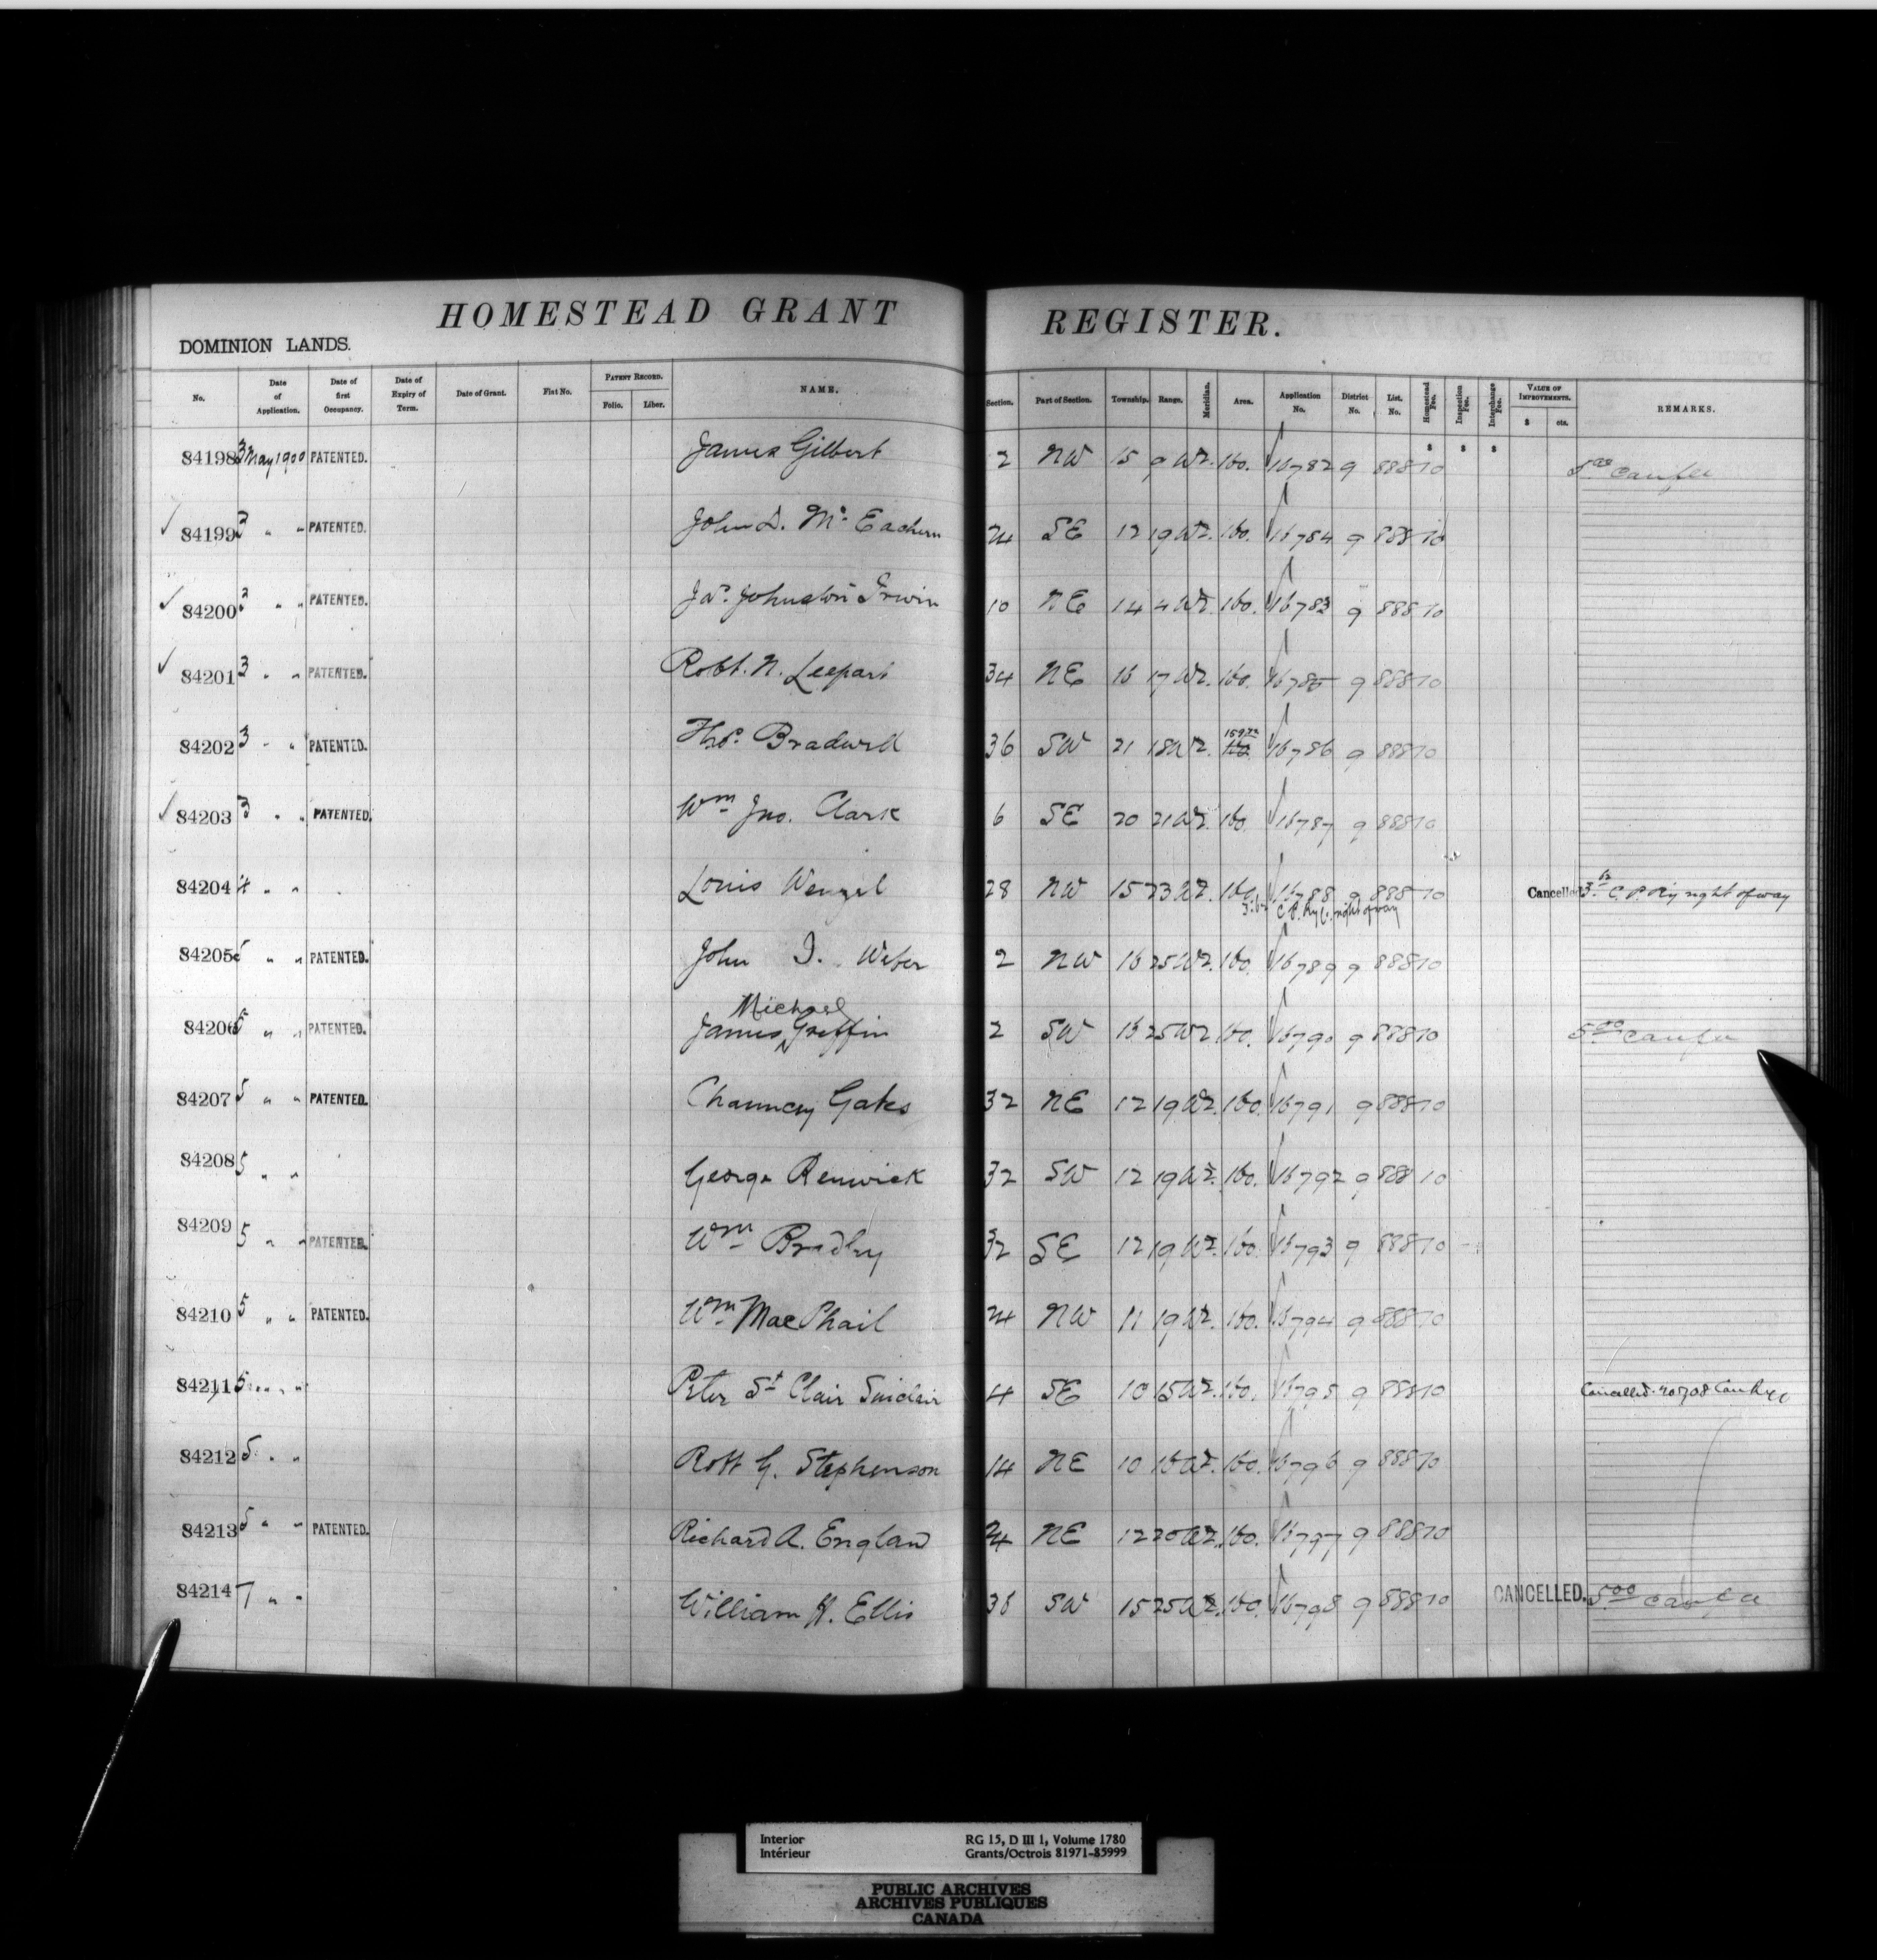 HOMESTEAD GRANT REGISTER.
DOMINION LANDS.
No. Date of Application. Date of first Occupancy. Date of Expiry of Term. Date of Grant. Fiat No. PATENT RECORD. Folio. Liber. NAME. Section. Part of Section. Township. Range. Meridian. Area. Application No. District No. List. No. Homestead Fee. Inspection Fee. Interchange Fee. VALUE OF IMPROVEMENTS. $ cts. REMARKS.
$ $ $
84198 3 May 1900 PATENTED. James Gilbert 2 NW 15 9 W2. 160. 16782 9 888 10 5.00
84199 3 " " PATENTED. John D. Mc Eachern 24 SE 12 19 W2. 160. 16784 9 888 10
84200 3 " " PATENTED. Jas. Johnston Irwin 10 NE 14 4 W2. 160. 16783 9 888 10
84201 3 " " PATENTED. Robt. N. 34 NE 16 17 W2. 160. 16785 9 888 10
84202 3 " " PATENTED. Thos. Bradwell 36 SW 21 18 W2. 160 16786 9 888 10
84203 3 " " PATENTED. Wm Jno. Clark 6 SE 20 21 W2. 160. 16787 9 888 10
84204 4 " " Louis Wenzel 28 NW 15 23 W2. 160. 16788 9 888 10 Cancelled C. P. Ry right of way
C.P. Ry Co. right of way
84205 5 " " PATENTED. John I. Weber 2 NW 16 25 W2. 160. 16789 9 888 10
Michael
84206 5 " " PATENTED. James Griffin 2 SW 16 25 W2 160. 16790 9 888 10 5.00
84207 5 " " PATENTED. Chauncey Gates 32 NE 12 19 W2. 160. 16791 9 888 10
84208 5 " " George Renwick 32 SW 12 19 W2. 160. 16792 9 888 10
84209 5 " " PATENTED. Wm Bradley 32 SE 12 19 W2. 160. 16793 9 888 10
84210 5 " " PATENTED. Wm MacPhail 24 NW 11 19 W2. 160. 16794 9 888 10
84211 5 " " Peter St Clair Sinclair 4 SE 10 15 W2. 160. 16795 9 888 10 Cancelled
84212 5 " " Robt G. Stephenson 14 NE 10 16 W2. 160. 16796 9 888 10
84213 5 " " PATENTED. Richard A. England 24 NE 12 20 W2. 160. 16797 9 888 10
84214 7 " " William H. Ellis 36 SW 15 25 W2. 160. 16798 9 888 10 CANCELLED. 5.00
Interior RG 15, D III 1, Volume 1780
Intérieur Grants/Octrois 81971-85999
PUBLIC ARCHIVES
ARCHIVES PUBLIQUES
CANADA